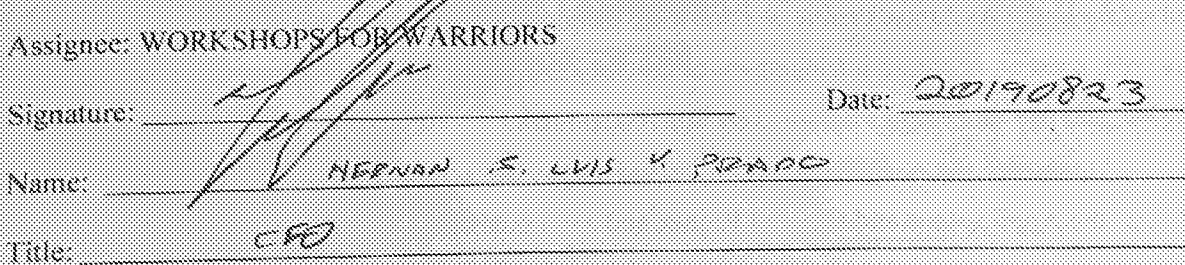 Assignee: WORKSHOPS FOR WARRIORS
Signature: Date: 20190823
Name: HERNAN S. LUIS Y PRADO
Title: